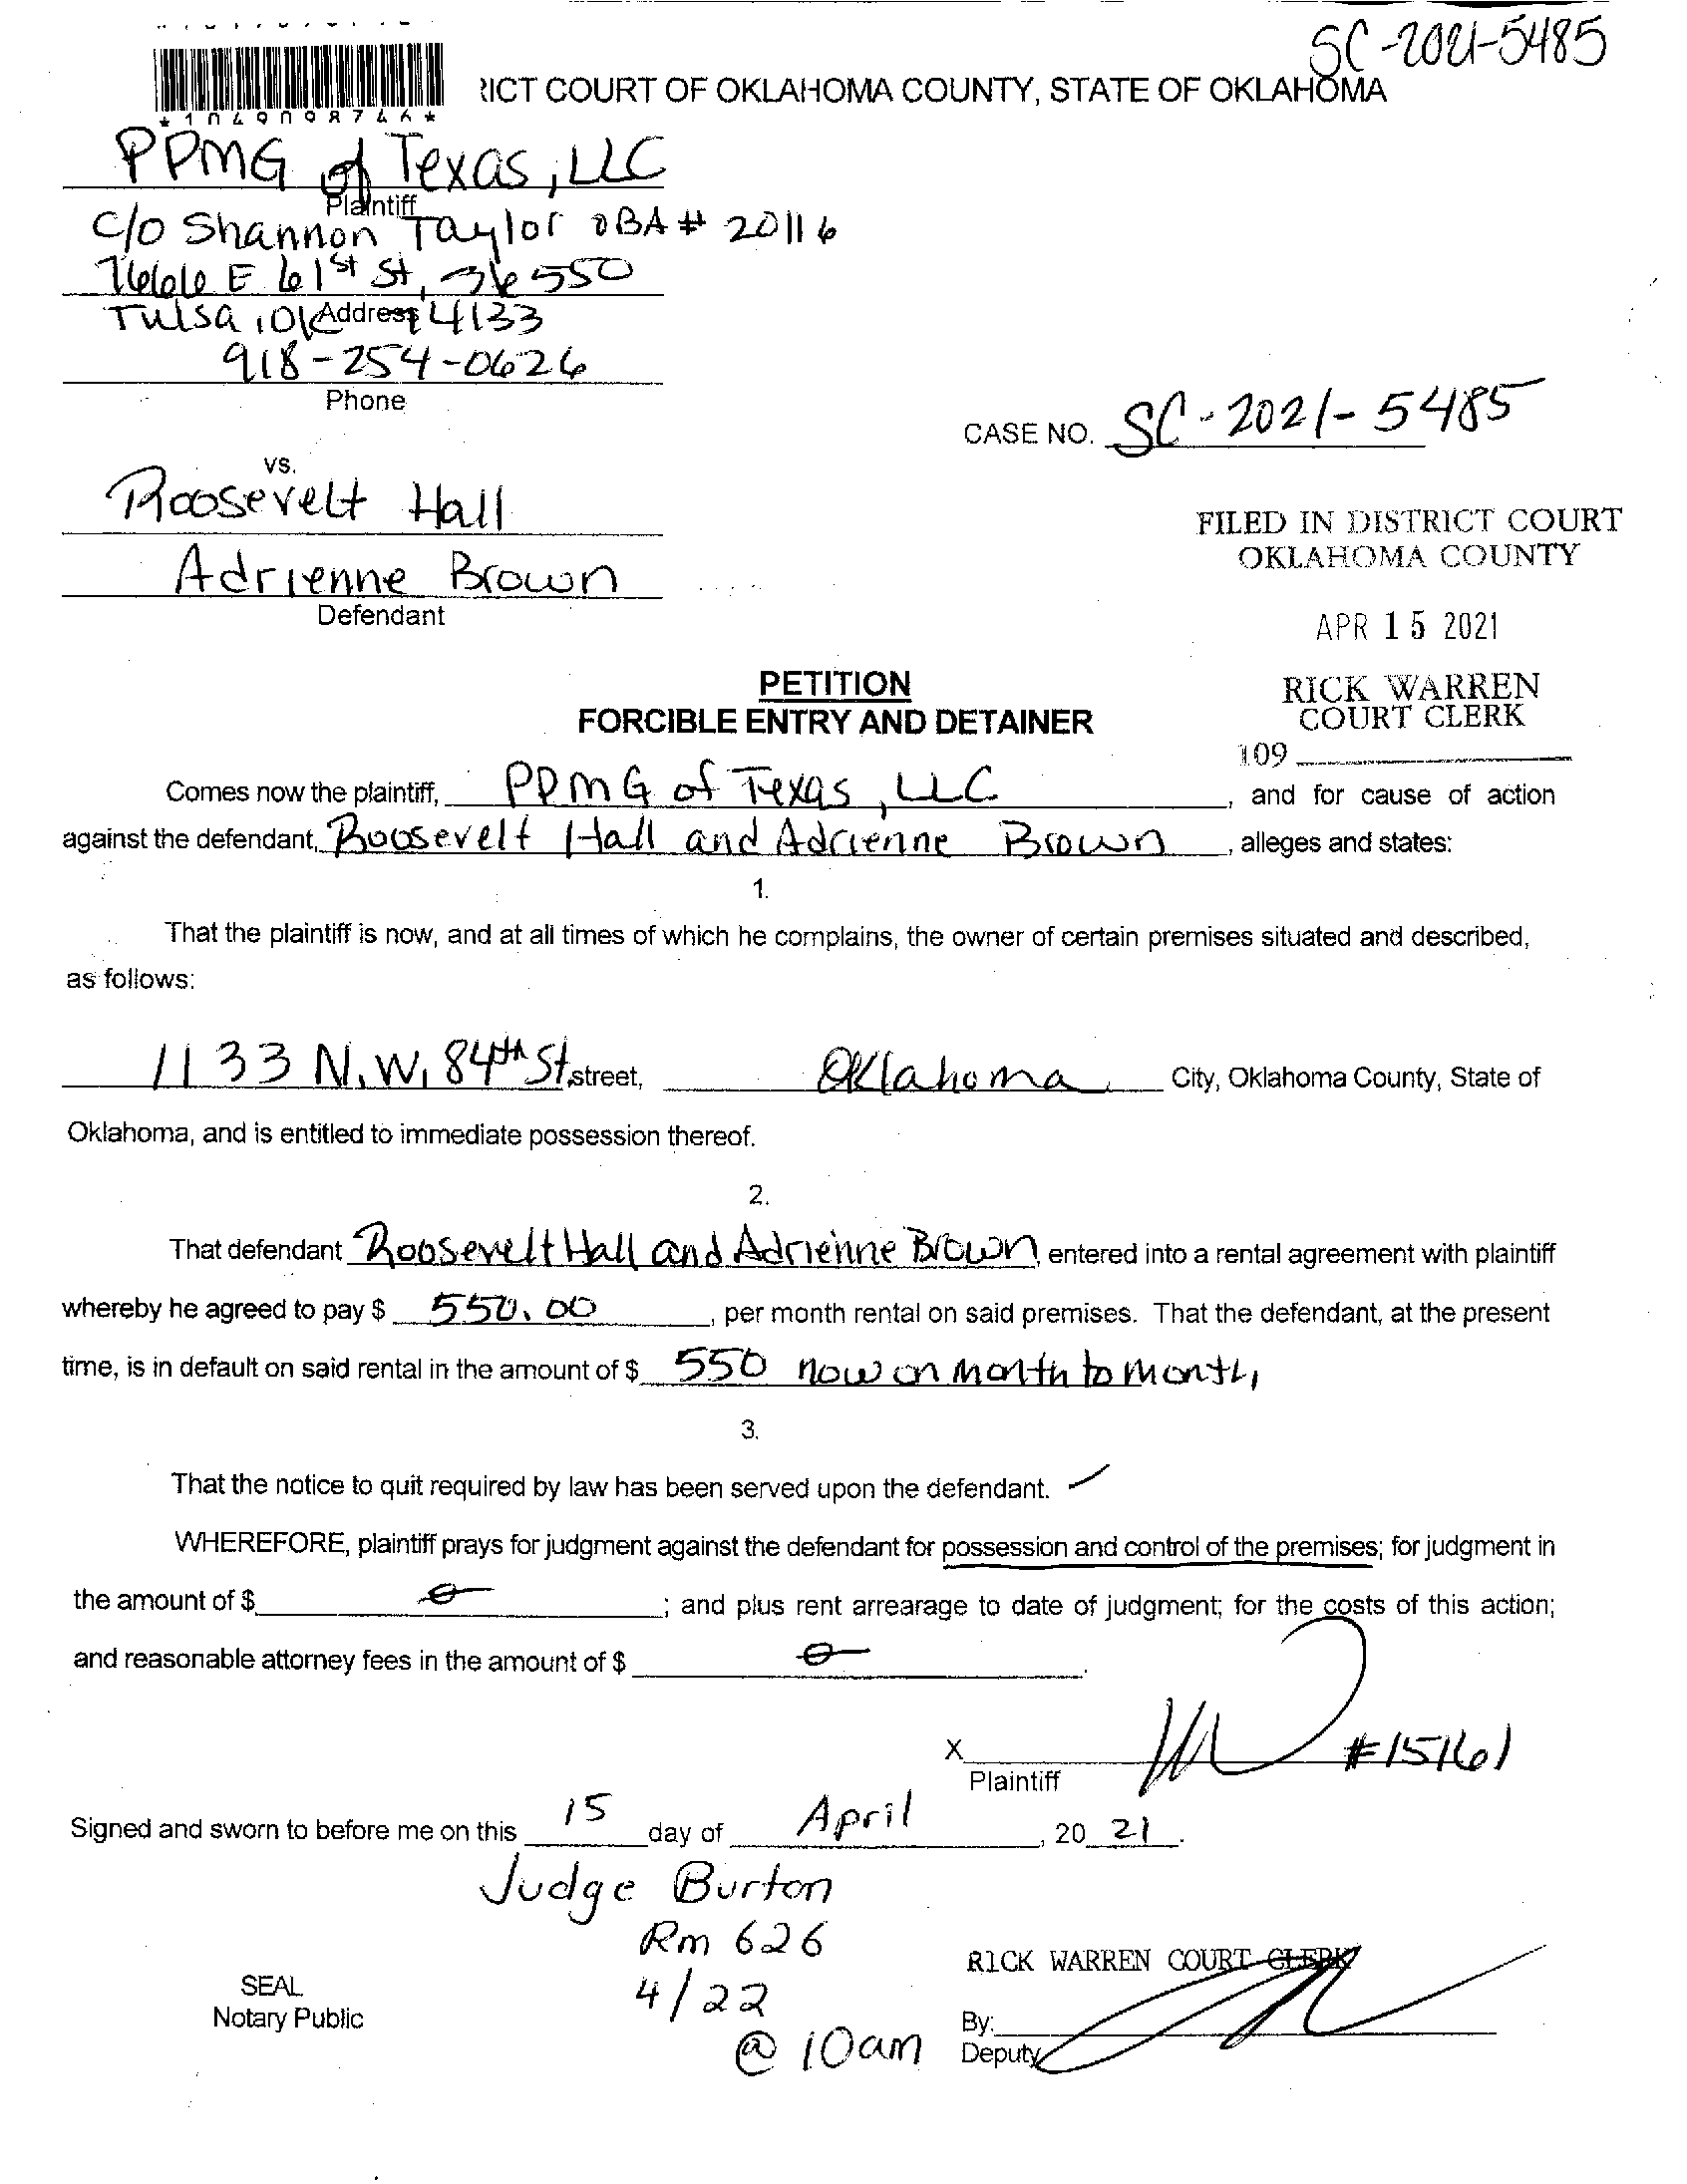 SC-2021-5485
RICT COURT OF OKLAHOMA COUNTY, STATE OF OKLAHOMA
PPMG of Texas, LLC
Plaintiff
c/o Shannon Taylor OBA# 20116
7666 E 61st St, 550
Tulsa, OK 74133
Address
918-254-0626
Phone
CASE NO. SC-2021-5485
vs.
Roosevelt Hall
Adrienne Brown
Defendant
FILED IN DISTRICT COURT
OKLAHOMA COUNTY
APR 15 2021
RICK WARREN
COURT CLERK
109
PETITION
FORCIBLE ENTRY AND DETAINER
Comes now the plaintiff, PPMG of Texas, LLC, and for cause of action
against the defendant, Roosevelt Hall and Adrienne Brown, alleges and states:
1.
That the plaintiff is now, and at all times of which he complains, the owner of certain premises situated and described,
as follows:
1133 N.W. 84th St street, Oklahoma City, Oklahoma County, State of
Oklahoma, and is entitled to immediate possession thereof.
2.
That defendant Roosevelt Hall and Adrienne Brown, entered into a rental agreement with plaintiff
whereby he agreed to pay $ 550.00, per month rental on said premises. That the defendant, at the present
time, is in default on said rental in the amount of $ 550 now on month to month,
3.
That the notice to quit required by law has been served upon the defendant. ✓
WHEREFORE, plaintiff prays for judgment against the defendant for possession and control of the premises; for judgment in
the amount of $ 0; and plus rent arrearage to date of judgment; for the costs of this action;
and reasonable attorney fees in the amount of $ 0.
X #15161
Plaintiff
Signed and sworn to before me on this 15 day of April, 20 21.
Judge Burton
Rm 626
4/22
@ 10am
SEAL
Notary Public
RICK WARREN COURT CLERK
By:
Deputy